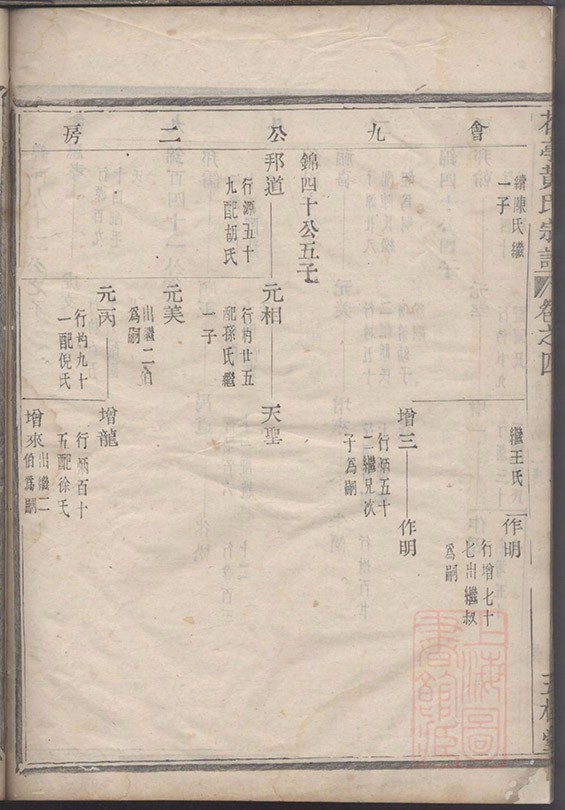 會九公二房
續陳氏繼
一子
繼王氏
作明
行增七十
七出繼叔
爲嗣
增三
行炳五十
二繼兄次
子爲嗣
作明
錦四十公五子
邦道
行源五十
九配胡氏
元相
行㭎廿五
配孫氏繼
一子
天聖
元美
出繼二伯
爲嗣
元丙
行㭎九十
一配倪氏
增龍
行炳百十
五配徐氏
增來
出繼二
伯爲嗣
黃氏宗譜
卷之四
上海圖書館藏